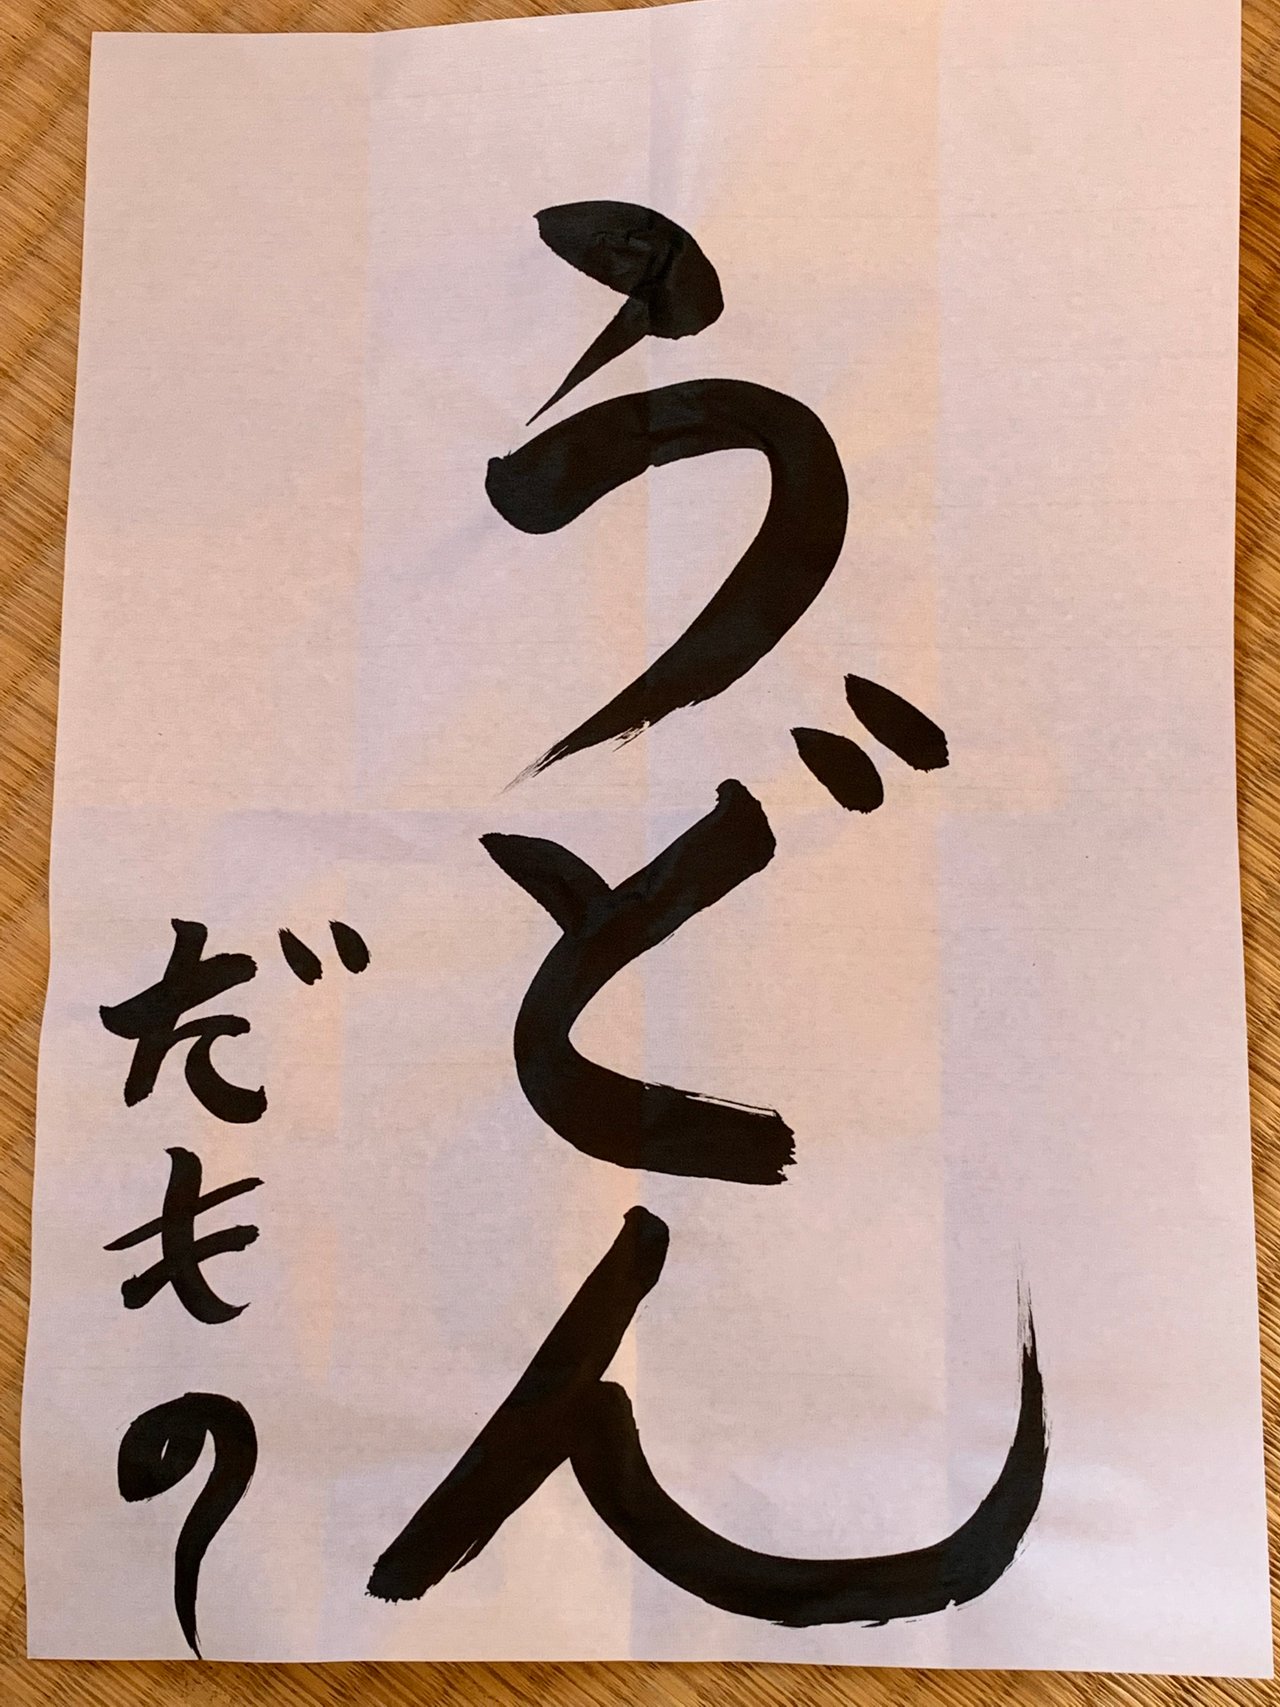 うどん
だもの